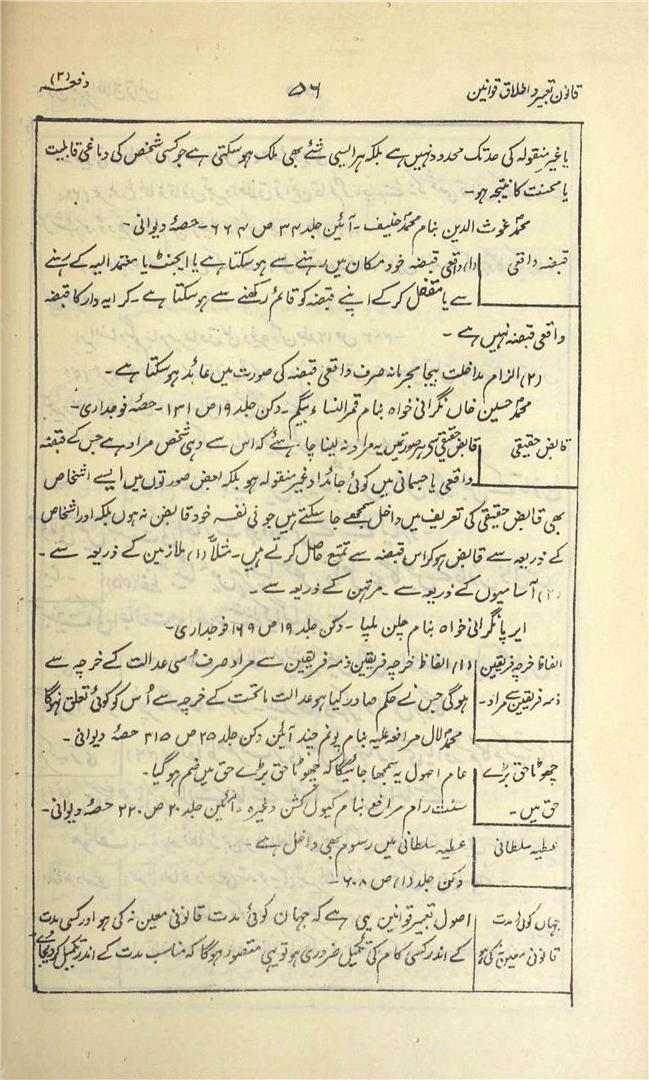 قانون تعبیر و اطلاق قوانین ۵۶ دفعہ (۲)
یا غیر منقولہ کی حد تک محدود نہیں ہے بلکہ ہر ایسی شئے بھی ملک ہو سکتی ہے جو کسی شخص کی دماغی قابلیت
یا محنت کا نتیجہ ہو۔
محمد غوث الدین بنام محمد حنیف۔ آئین جلد ۳۴ ص ۶۶۴۔ حصۂ دیوانی۔
قبضہ واقعی
(۱) واقعی قبضہ خود مکان میں رہنے سے ہو سکتا ہے یا ایجنٹ یا معتمد الیہ کے رہنے
سے یا مقفل کر کے اپنے قبضہ کو قائم رکھنے سے ہو سکتا ہے۔ کرایہ دار کا قبضہ
واقعی قبضہ نہیں ہے۔
(۲) الزام مداخلت بیجا مجرمانہ صرف واقعی قبضہ کی صورت میں عائد ہو سکتا ہے۔
محمد حسین خاں نگرانی خواہ بنام قمر النساء بیگم۔ دکن جلد ۱۹ ص ۱۳۱۔ حصۂ فوجداری۔
قابض حقیقی
قابض حقیقی کی ہر صورت میں یہ مراد نہ لینا چاہئے کہ اس سے وہی شخص مراد ہے جس کے قبضہ
واقعی یا جسمانی میں کوئی جائداد غیر منقولہ ہو بلکہ بعض صورتوں میں ایسے اشخاص
بھی قابض حقیقی کی تعریف میں داخل سمجھے جا سکتے ہیں جو فی نفسہ خود قابض نہ ہوں بلکہ اور اشخاص
کے ذریعہ سے قابض ہو کر اس قبضہ سے تمتع حاصل کرتے ہیں۔ مثلاً (۱) ملازمین کے ذریعہ سے۔
(۲) آسامیوں کے ذریعہ سے۔ مرتہن کے ذریعہ سے۔
ایرپا نگرانی خواہ بنام چلن ملپا۔ دکن جلد ۱۹ ص ۱۶۹ فوجداری۔
الفاظ خرچہ فریقین
ذمہ فریقین سے مراد۔
(۱) الفاظ خرچہ فریقین ذمہ فریقین سے مراد صرف اسی عدالت کے خرچہ سے
ہوگی جس نے حکم صادر کیا ہو عدالت ماتحت کے خرچہ سے اُس کو کوئی تعلق نہ ہوگا
محمد لال مرافعہ علیہ بنام پونم چند آئین دکن جلد ۲۵ ص ۳۱۵ حصۂ دیوانی۔
چھوٹا حق بڑے
حق میں۔
عام اصول یہ سمجھا جائیگا کہ چھوٹا حق بڑے حق میں ضم ہو گیا۔
سنت رام مرافع بنام کیول کشن وغیرہ۔ آئین جلد ۲۰ ص ۲۲۰ حصۂ دیوانی۔
عطیہ سلطانی
عطیہ سلطانی میں رسوم بھی داخل ہے۔
دکن جلد (۱) ص ۶۰۸۔
جہاں کوئی مدت
قانونی معین نہ کی ہو
اصول تعبیر قوانین یہی ہے کہ جہان کوئی مدت قانونی معین نہ کی ہو اور کسی مدت
کے اندر کسی کام کی تکمیل ضروری ہو تو یہی متصور ہوگا کہ مناسب مدت کے اندر تکمیل کر دیجائے